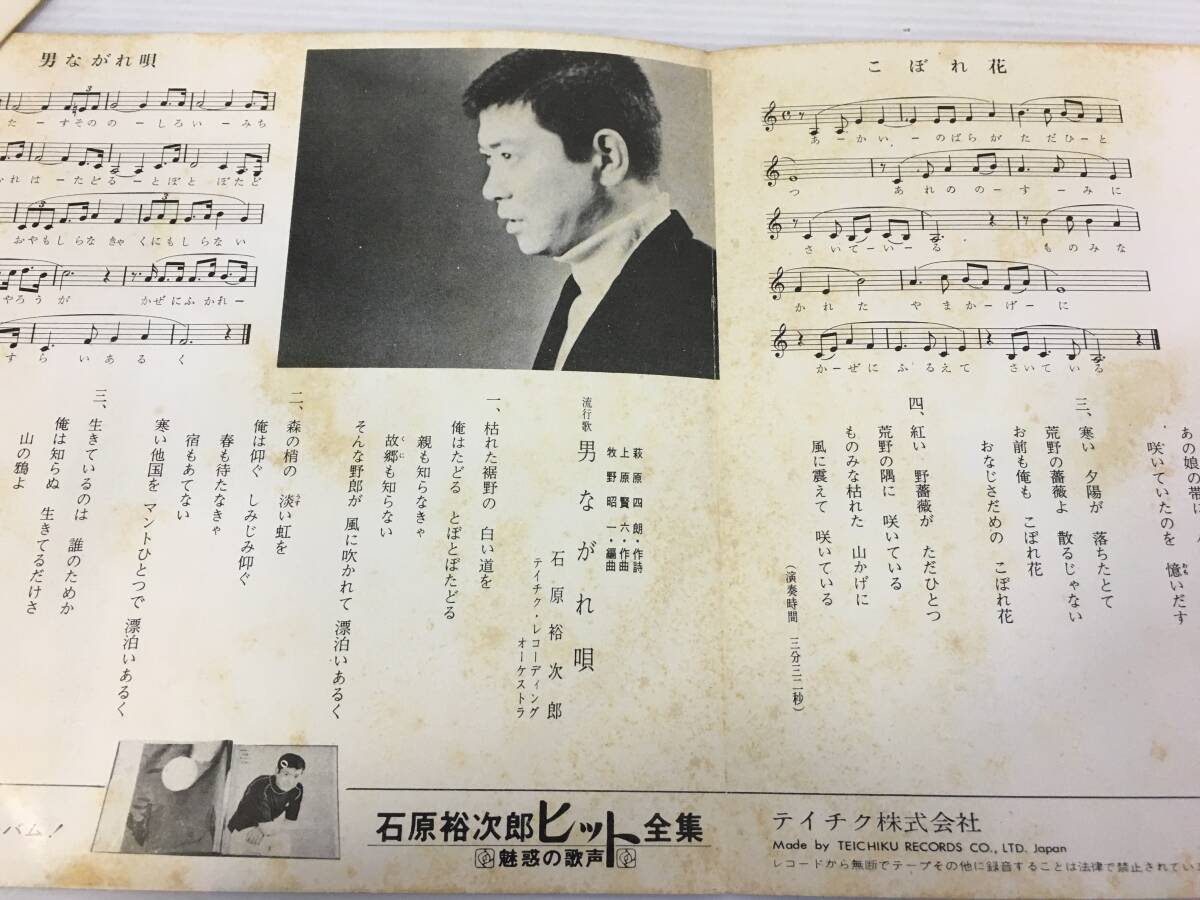 こぼれ花
あーかいーのばらが ただひーと
つ あれののーすーみに
さいてーいーる ものみな
かれた やまかーげーに
かーぜに ふるえて さいている
咲いていたのを 憶いだす
おも
三、寒い 夕陽が 落ちたとて
荒野の薔薇よ 散るじゃない
お前も俺も こぼれ花
おなじさだめの こぼれ花
四、紅い 野薔薇が ただひとつ
荒野の隅に 咲いている
ものみな枯れた 山かげに
風に震えて 咲いている
(演奏時間 三分三二秒)
男ながれ唄
たーすそののーしろいーみち
れはーたどるーとぼと ぼたど
おやもしらなきゃ くにもしらない
やろうが かぜにふかれー
すらいあるく
萩原四朗・作詩
上原賢六・作曲
牧野昭一・編曲
流行歌 男ながれ唄
石原裕次郎
テイチク・レコーディング
オーケストラ
一、枯れた裾野の 白い道を
俺はたどる とぼとぼたどる
親も知らなきゃ
故郷も知らない
くに
そんな野郎が 風に吹かれて 漂泊いあるく
二、森の梢の 淡い虹を
うす
俺は仰ぐ しみじみ仰ぐ
春も待たなきゃ
宿もあてない
寒い他国を マントひとつで 漂泊いあるく
三、生きているのは 誰のためか
俺は知らぬ 生きてるだけさ
山の鴉よ
バム!
石原裕次郎ヒット全集
魅惑の歌声
テイチク株式会社
Made by TEICHIKU RECORDS CO., LTD. Japan
レコードから無断でテープその他に録音することは法律で禁止されてい